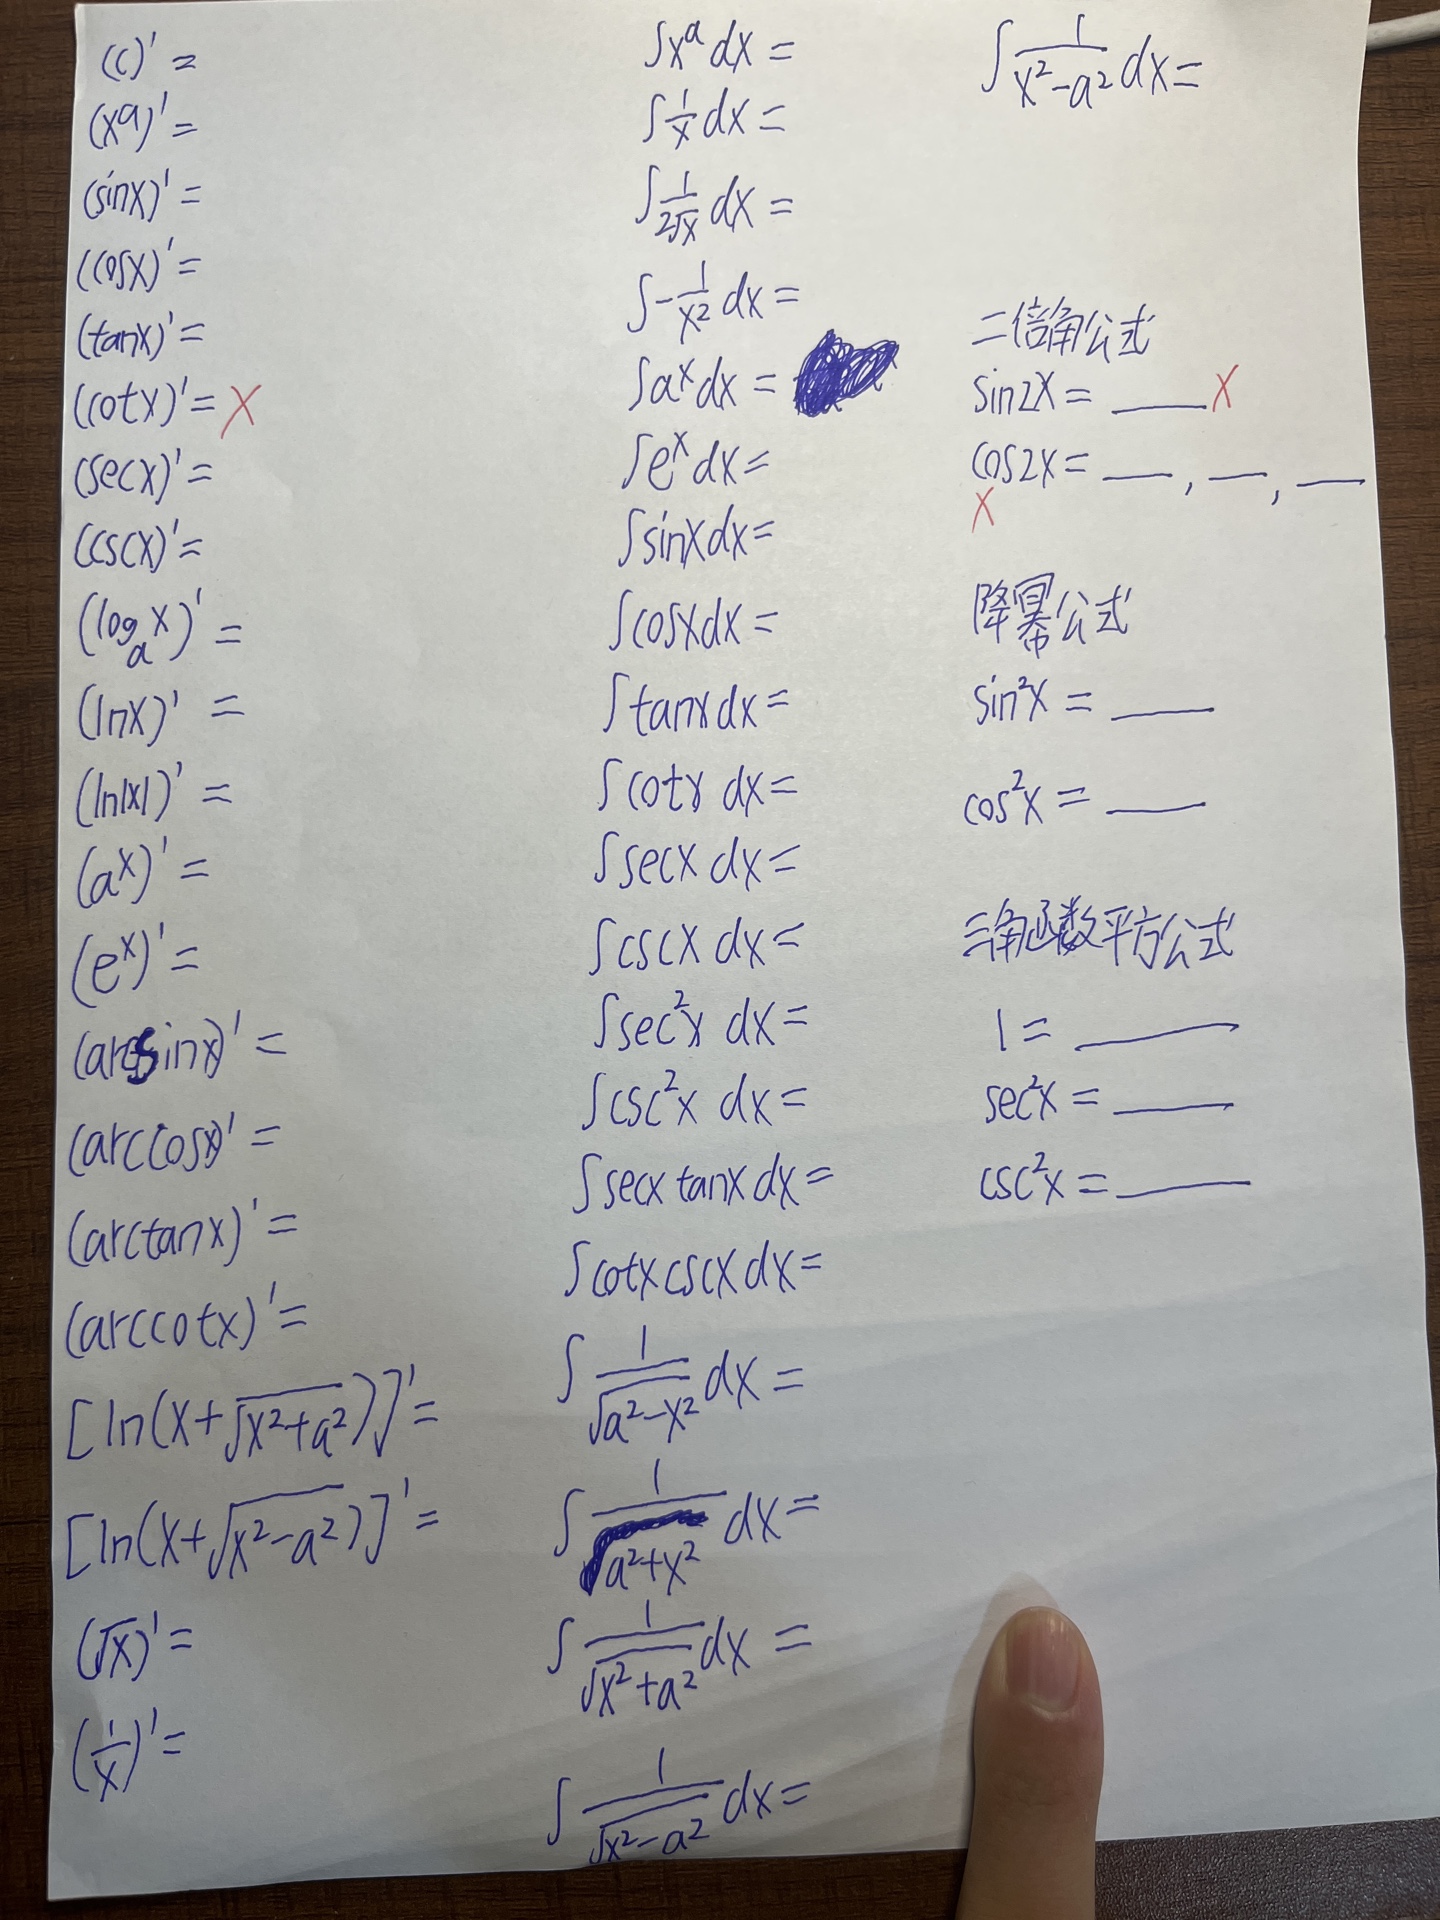 (c)' =
(xᵃ)' =
(sinx)' =
(cosx)' =
(tanx)' =
(cotx)' = X
(secx)' =
(cscx)' =
(logₐx)' =
(lnx)' =
(ln|x|)' =
(aˣ)' =
(eˣ)' =
(arcsinx)' =
(arccosx)' =
(arctanx)' =
(arccotx)' =
[ln(x+√(x²+a²))]' =
[ln(x+√(x²-a²))]' =
(√x)' =
(1/x)' =
∫xᵃ dx =
∫1/x dx =
∫1/(2√x) dx =
∫-1/x² dx =
∫aˣ dx =
∫eˣ dx =
∫sinx dx =
∫cosx dx =
∫tanx dx =
∫cotx dx =
∫secx dx =
∫cscx dx =
∫sec²x dx =
∫csc²x dx =
∫secx tanx dx =
∫cotx cscx dx =
∫1/√(a²-x²) dx =
∫1/(a²+x²) dx =
∫1/√(x²+a²) dx =
∫1/√(x²-a²) dx =
∫1/(x²-a²) dx =
二倍角公式
sin2x = ____ X
cos2x = ___, ___, ___
X
降幂公式
sin²x = ____
cos²x = ____
三角函数平方公式
1 = ____
sec²x = ____
csc²x = ____